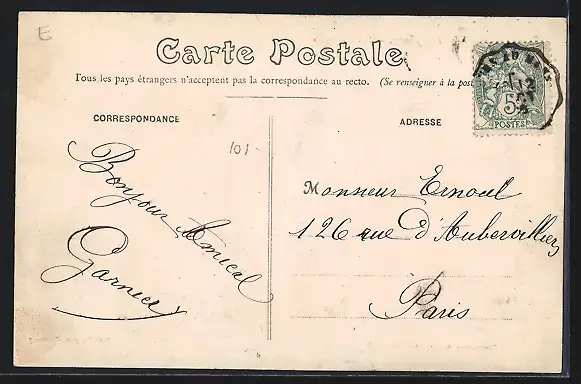 E
Carte Postale
Tous les pays étrangers n'acceptent pas la correspondance au recto. (Se renseigner à la post
CORRESPONDANCE
ADRESSE
101
Bonjour Amical
Garnier
Monsieur Ernoul
126 rue d'Aubervilliers
Paris
5
POSTES